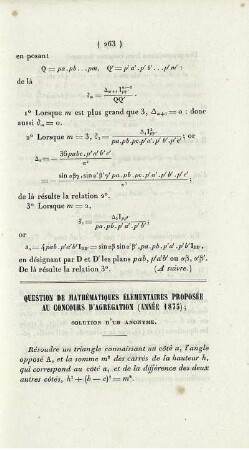 ( 263 )
en posant
Q = pa.pb...pm, Q' = p'a'.p'b'...p'm' :
de là
QQ'
1° Lorsque m est plus grand que 3, Δₘ₊₁ = 0 : donc
aussi δₘ = 0.
2° Lorsque m = 3,
pa.pb.pc.p'a'.p'b'.p'c'
; or
36pabc.p'a'b'c'
de là résulte la relation 2°.
3° Lorsque m = 2,
pa.pb.p'a'.p'b'
or
en désignant par D et D' les plans pab, p'a'b' ou αβ, α'β'.
De là résulte la relation 3°. (A suivre.)
QUESTION DE MATHÉMATIQUES ÉLÉMENTAIRES PROPOSÉE
AU CONCOURS D'AGRÉGATION (ANNÉE 1875);
SOLUTION D'UN ANONYME.
Résoudre un triangle connaissant un côté a, l'angle
opposé A, et la somme m² des carrés de la hauteur h,
qui correspond au côté a, et de la différence des deux
autres côtés, h² + (b − c)² = m².